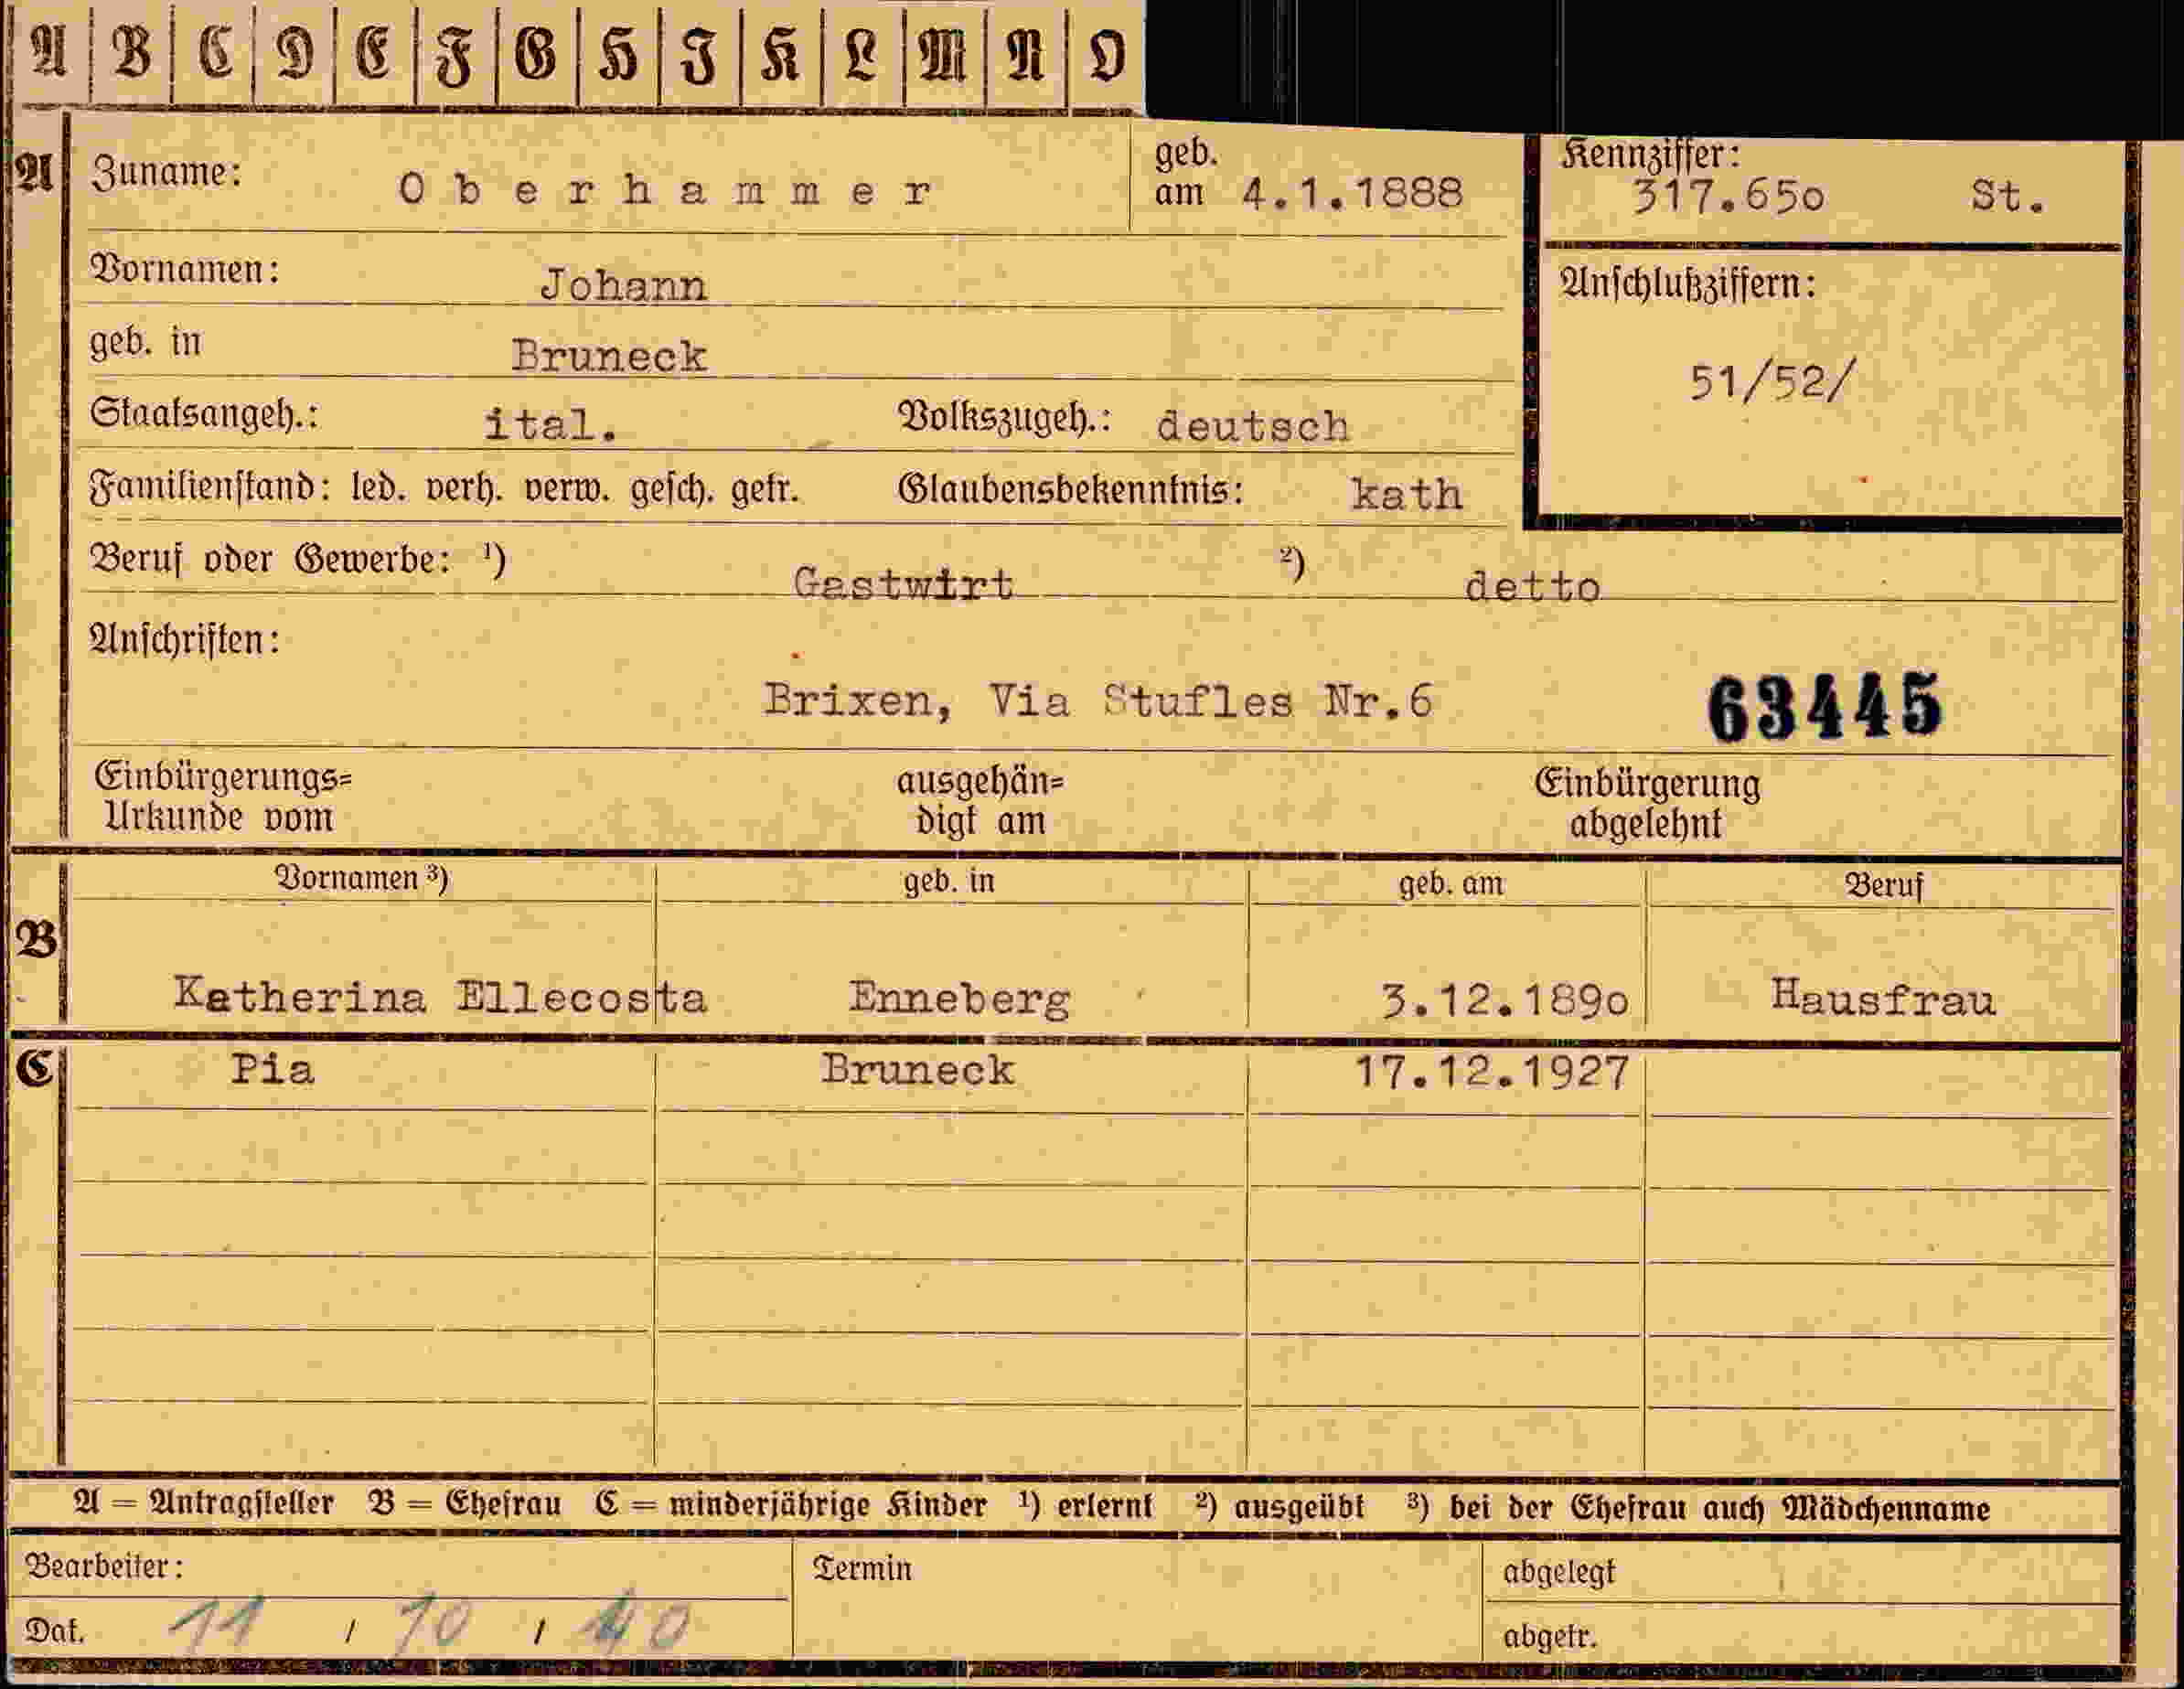 A B C D E F G H I K L M N O
A
Zuname: Oberhammer geb. am 4.1.1888
Kennziffer: 317.65o St.
Vornamen: Johann
Anschlußziffern:
51/52/
geb. in Bruneck
Staatsangeh.: ital. Volkszugeh.: deutsch
Familienstand: led. verh. verw. gesch. getr. Glaubensbekenntnis: kath
Beruf oder Gewerbe: ¹) Gastwirt ²) detto
Anschriften:
Brixen, Via Stufles Nr.6 63445
Einbürgerungs= ausgehän= Einbürgerung
Urkunde vom digt am abgelehnt
Vornamen ³) geb. in geb. am Beruf
B
Katherina Ellecosta Enneberg 3.12.189o Hausfrau
C Pia Bruneck 17.12.1927
A = Antragsteller B = Ehefrau C = minderjährige Kinder ¹) erlernt ²) ausgeübt ³) bei der Ehefrau auch Mädchenname
Bearbeiter: Termin abgelegt
Dat. 11 / 10 / 40 abgetr.